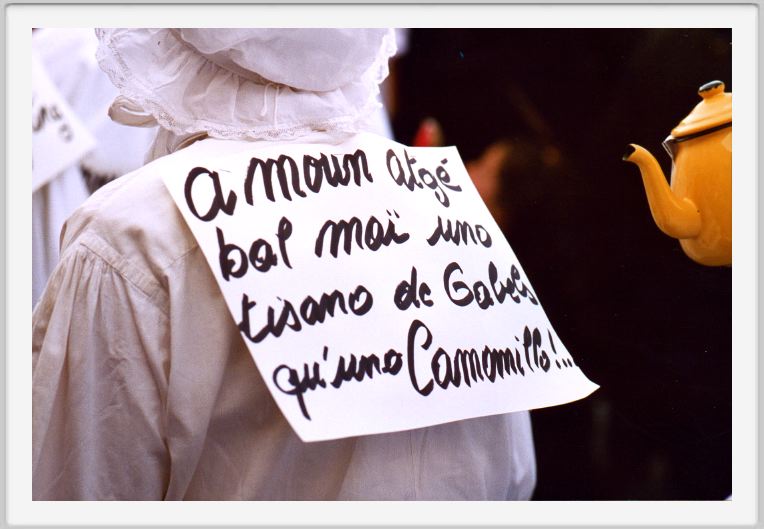 a moun atgé
bal maï uno
tisano de Gabels
qu'uno Camomillo!...